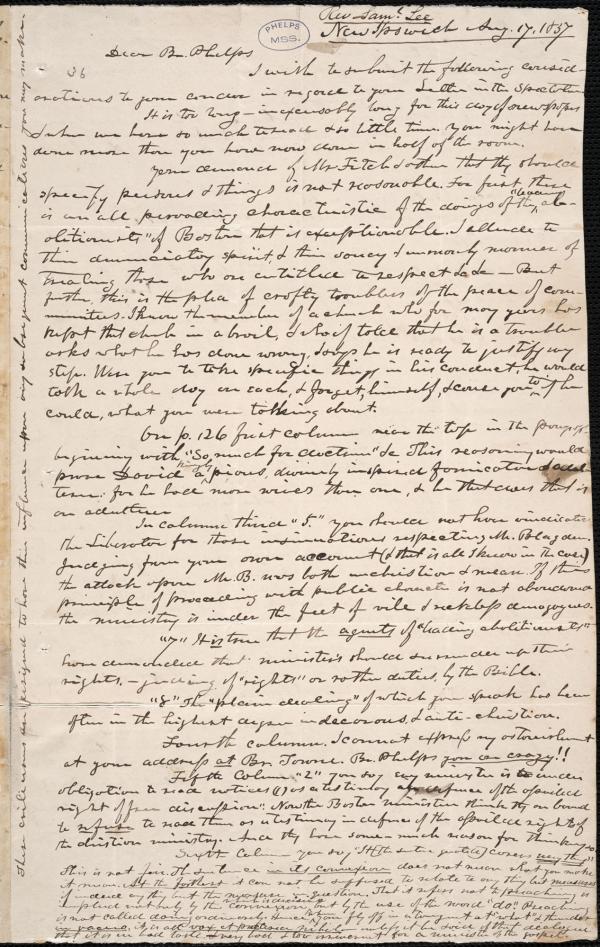 Rev. Saml. Lee
New Ipswich Aug. 17, 1837
PHELPS
MSS.
36
Dear Br. Phelps
I wish to submit the following consid-
erations to your candor in regard to your Letter in the Spectator.
It is too long - inexcusably long for this day of newspapers
& when we have so much to read & so little time. You might have
done more than you have now done in half of the room.
Your demand of Mr. Fitch & others that they should
specify persons & things is not reasonable. For first there
is an all pervading characteristic of the doings of the "leading ab-
olitionists" of Boston that is exceptionable. I allude to
their denunciatory spirit, & their saucy & unmanly manner of
treating those who are entitled to respect &c &c - But
further, this is the plea of crafty troublers of the peace of com-
munities. I know the member of a church who for many years has
kept that church in a broil, & who if told that he is a troubler
asks what he has done wrong, & says he is ready to justify any
step. Were you to take specific things in his conduct, he would
talk a whole day on each, & forget, himself, & cause you to, if he
could, what you were talking about.
On p. 126 first column near the top in the paragraph
beginning with "So, much for doctrine" &c. This reasoning would
prove David a pious, divinely inspired fornicator & adul-
terer: for he had more wives than one, & he that does that is
an adulterer.
In column third "5." you should not have vindicated
the Liberator for those insinuations respecting Mr. Blagden.
Judging from your own account (& that is all I know in the case)
the attack upon Mr. B. was both unchristian & mean. If this
principle of proceeding with public character is not abandoned
the ministry is under the feet of vile & reckless demagogues.
"7" It is true that the agents of "leading abolitionists"
have demanded that ministers should surrender up their
rights, - judging of "rights" or rather duties, by the Bible.
"8" The "plain dealing" of which you speak has been
often in the highest degree indecorous, & anti-christian.
Fourth column. I cannot express my astonishment
at your address at Br. Towne. Br. Phelps you are crazy!!
Fifth Column "2" you say any minister is under
obligation to read notices (1) as a testimony & defence of the assailed
right of free discussion". Now the Boston ministers think they are bound
to refuse to read them as a testimony in defence of the assailed rights of
the christian ministry. And they have some - much reason for thinking so.
Sixth Column you say "It (the sentence quoted) covers any thing"
This is not fair. The sentence in its connexion does not mean what you make
it mean. At the farthest it can not be suffused to relate to any thing but measures
if indeed any but the measure in question. That it refers not to preaching is
implied not only by the connexion but by the use of the word "do." Preaching
is not called doing ordinarily.
These criticisms are designed to have their influence upon any subsequent communications you may make.